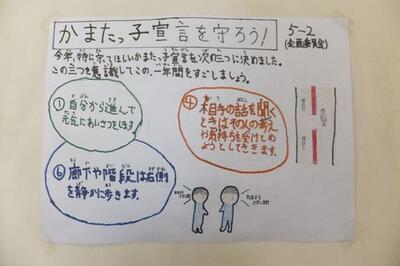 かまたっ子宣言を守ろう!
5-2
(企画委員会)
今年、特に守ってほしいかまたっ子宣言を次の三つに決めました。
この三つを意識してこの、一年間をすごしましょう。
①自分から進んで
元気にあいさつをします。
④相手の話を聞く
ときは初人の考え
や気持ちを受けとめ
ようとしてききます。
⑥廊下や階段は右側
を静かに歩きます。